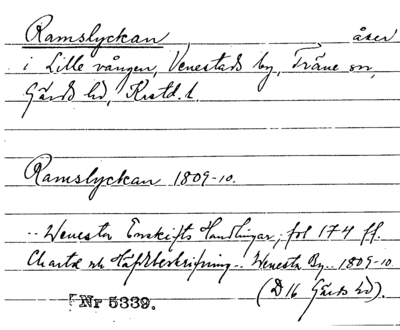 Ramslyckan åker
i Lille vången, Venestads by, Träne sn,
Gärds hd, Krstd. l.
Ramslyckan 1809-10.
.. Wenesta Enskifts Handlingar, fol 174 ff.
Charta och Häfdbeskrifning .. Wenesta By .. 1809-10
(D 16 Gärds hd).
Nr 5339.